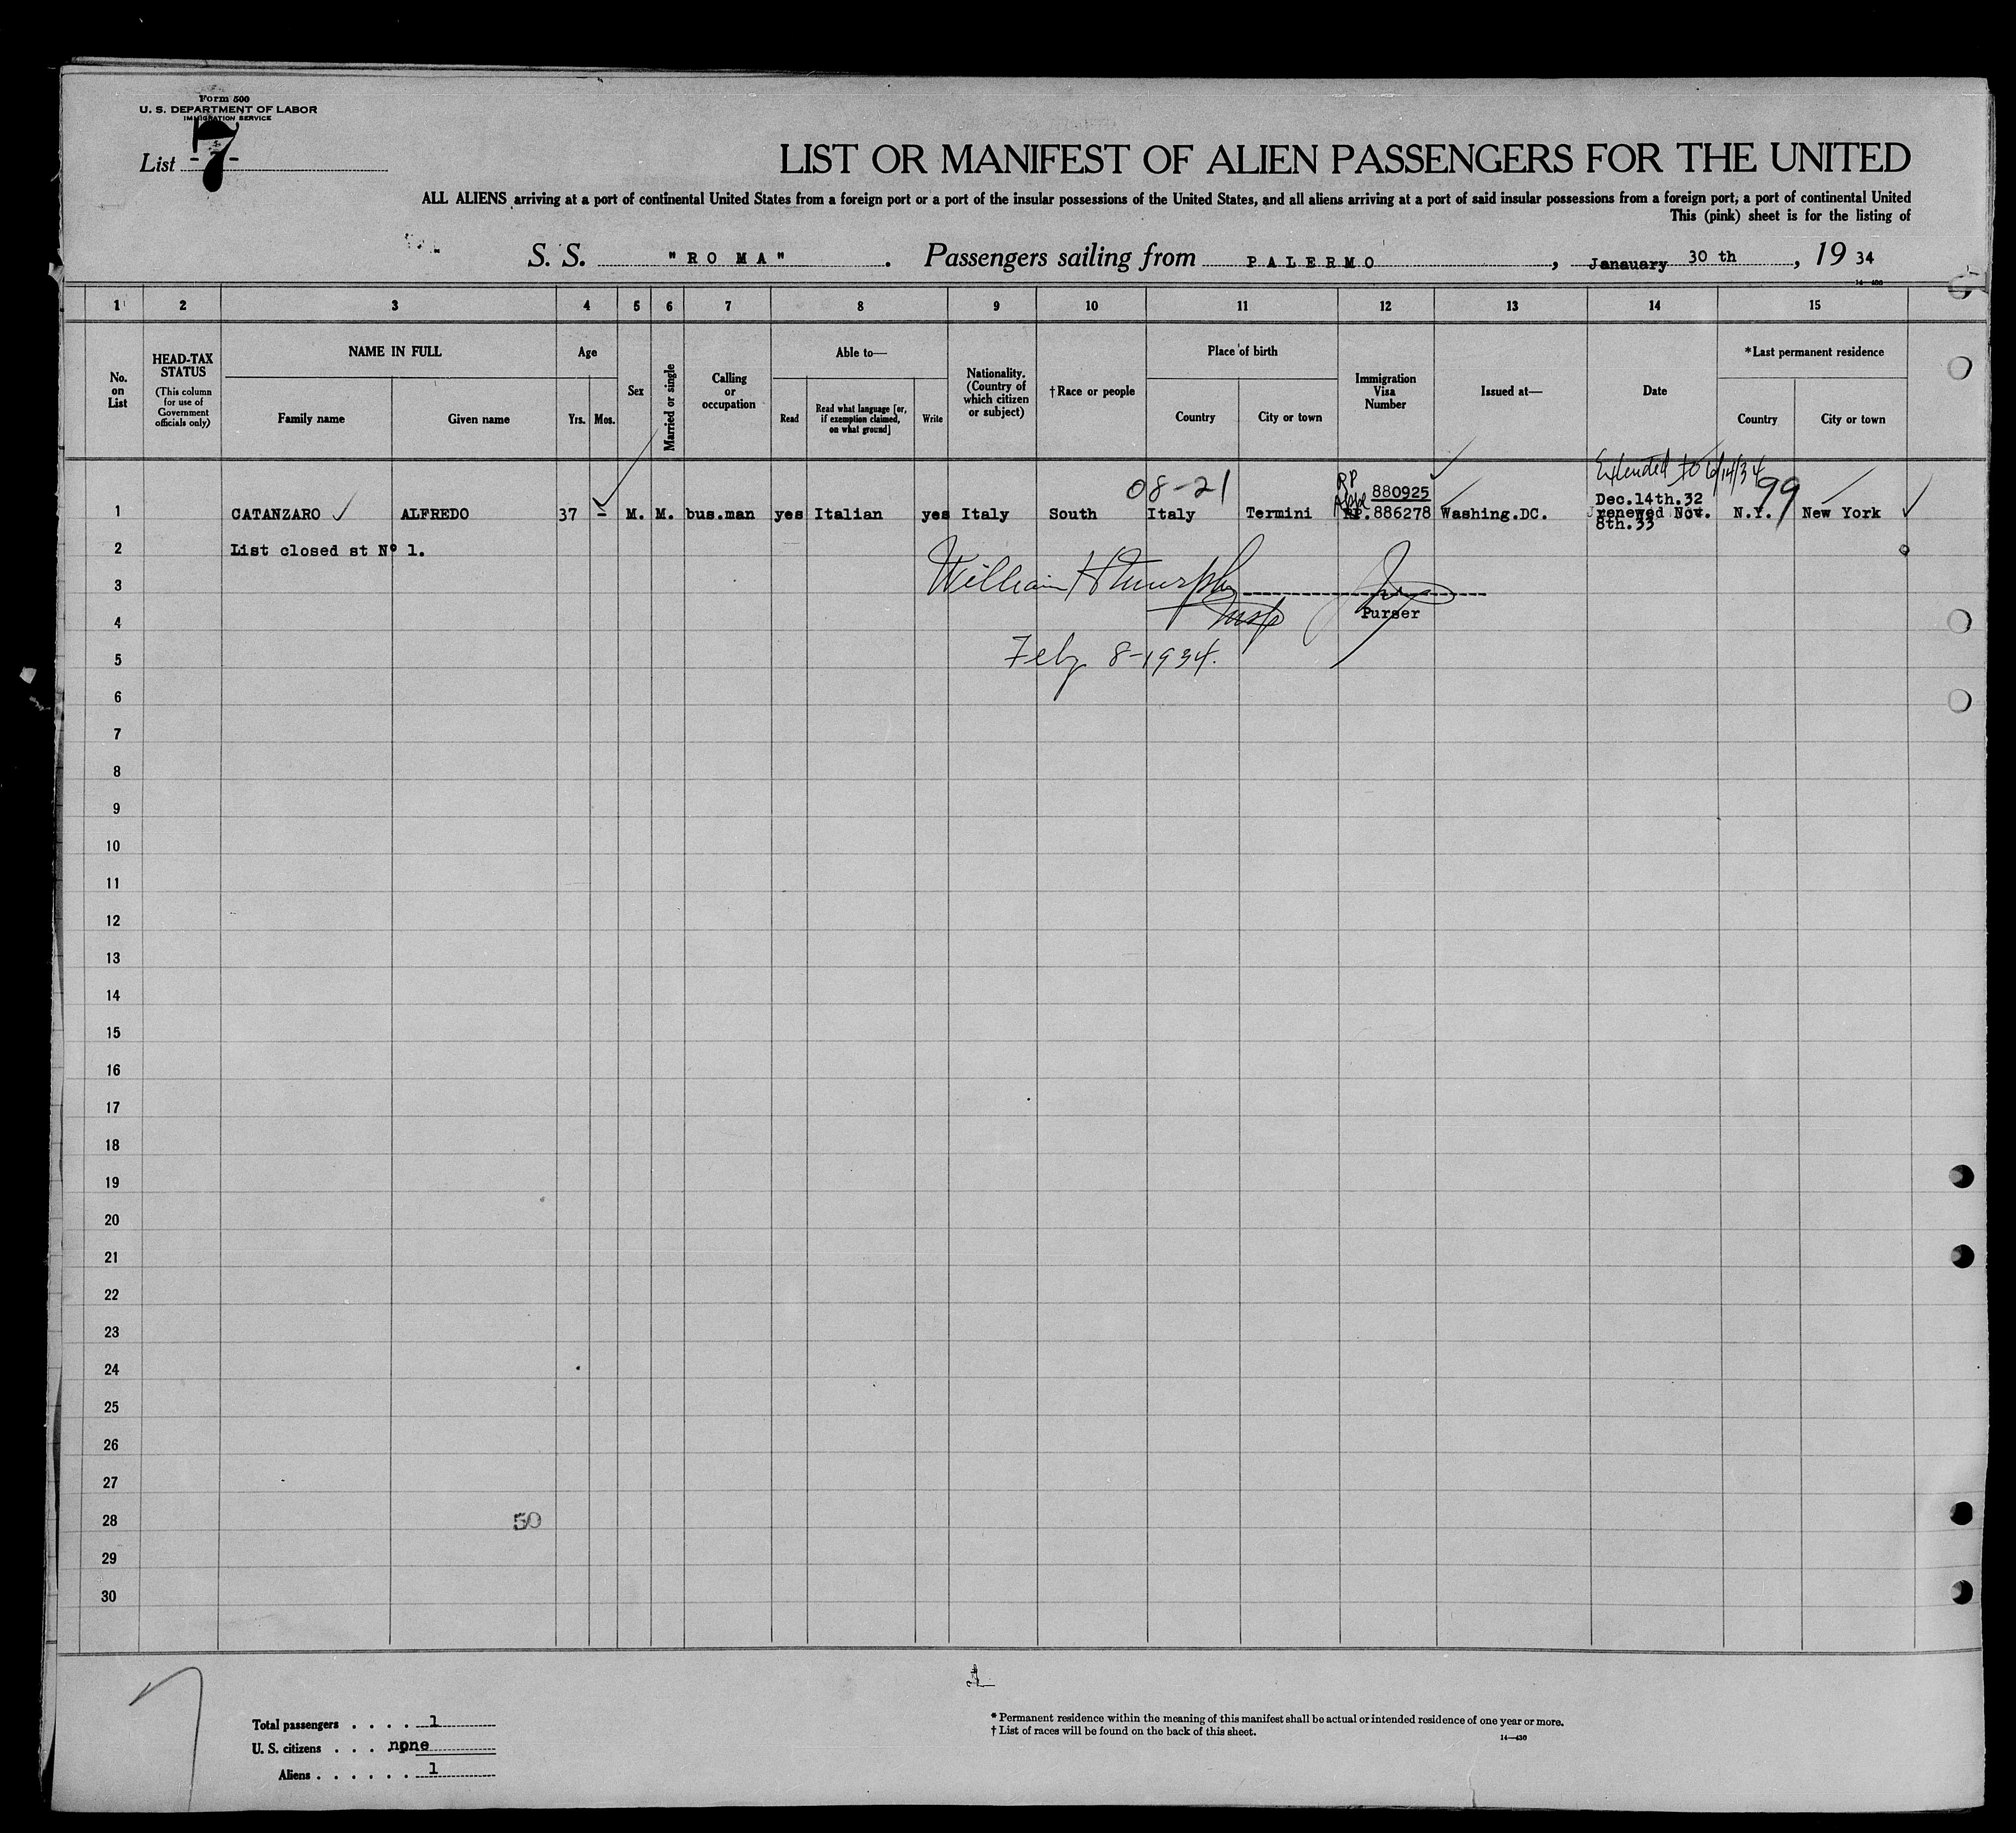 Form 500
U. S. DEPARTMENT OF LABOR
IMMIGRATION SERVICE
List -7-
LIST OR MANIFEST OF ALIEN PASSENGERS FOR THE UNITED
ALL ALIENS arriving at a port of continental United States from a foreign port or a port of the insular possessions of the United States, and all aliens arriving at a port of said insular possessions from a foreign port, a port of continental United
This (pink) sheet is for the listing of
S. S. "ROMA". Passengers sailing from PALERMO, Janauary 30 th, 19 34
14-430
1 2 3 4 5 6 7 8 9 10 11 12 13 14 15
No. on List
HEAD-TAX STATUS (This column for use of Government officials only)
NAME IN FULL
Family name
Given name
Age
Yrs. Mos.
Sex
Married or single
Calling or occupation
Able to—
Read
Read what language [or, if exemption claimed, on what ground]
Write
Nationality. (Country of which citizen or subject)
†Race or people
Place of birth
Country
City or town
Immigration Visa Number
Issued at—
Date
*Last permanent residence
Country
City or town
Extended to 6/14/34
08-21 RP 880925 Dec.14th.32 99
1 CATANZARO ALFREDO 37 - M. M. bus.man yes Italian yes Italy South Italy Termini RP.886278 Washing.DC. renewed Nov. N.Y. New York
8th.33
2 List closed st Nº 1.
3 William H Murphy
4 Insp Purser
5 Feby 8-1934.
6
7
8
9
10
11
12
13
14
15
16
17
18
19
20
21
22
23
24
25
26
27
28 50
29
30
7
Total passengers . . . . 1
U. S. citizens . . . none
Aliens . . . . . . 1
* Permanent residence within the meaning of this manifest shall be actual or intended residence of one year or more.
† List of races will be found on the back of this sheet.
14-430